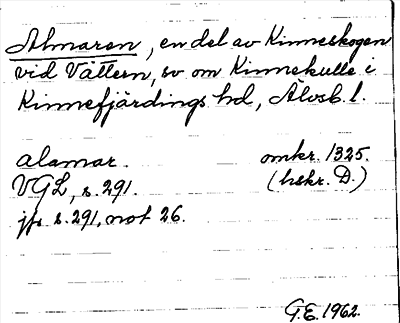 Almaren, en del av Kinneskogen
vid Vättern, sv om Kinnekulle i
Kinnefjärdings hd, Älvsb. l.
alamar. omkr. 1325.
VGL, s. 291. (hskr. D.)
jfr s. 291, not 26.
G.E. 1962.